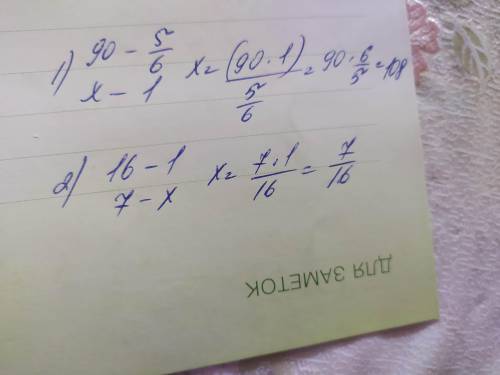 1) 90 - 5/6 x = (90 · 1) / 5/6 = 90 · 6/5 = 108
x - 1
2) 16 - 1 x = 7 · 1 / 16 = 7/16
7 - x
ДЛЯ ЗАМЕТОК